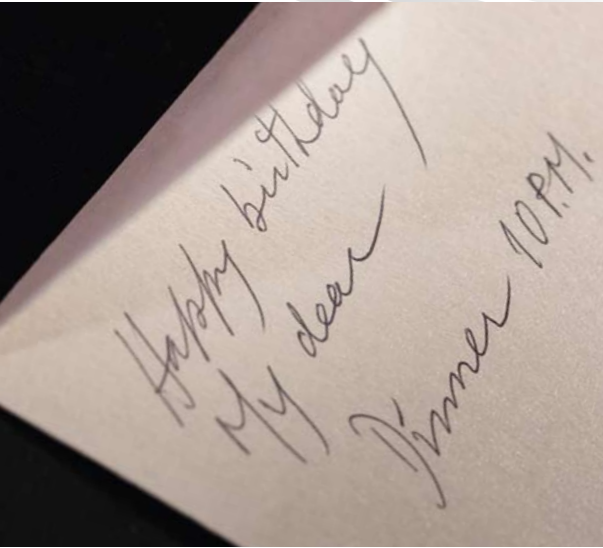 Happy birthday
My dear
Dinner 10 P.M.